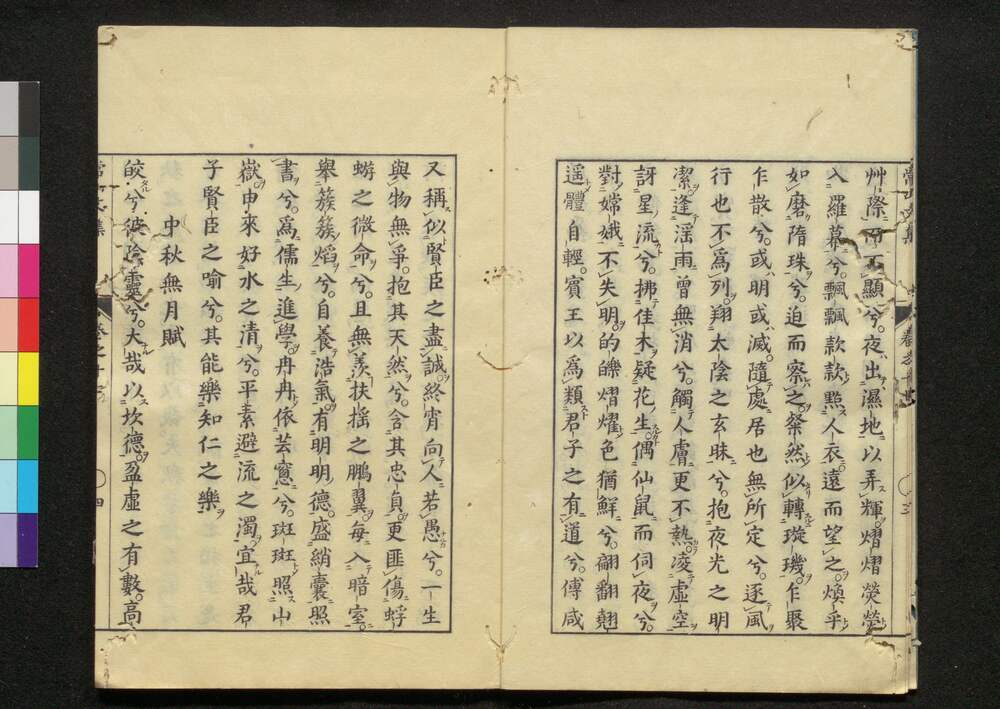 艸際而不顯兮夜出濕地以弄輝熠熠熒熒
入羅幕兮飄飄款款點人衣遠而望之煥乎
如磨隋珠兮迫而察之粲然似轉璇璣乍聚
乍散兮或明或滅隨處居也無所定兮逐風
行也不爲列翔太陰之玄昧兮抱夜光之明
潔逢淫雨曽無消兮觸人膚更不熱凌虛空
訝星流兮拂佳木疑花生偶仙鼠而伺夜兮
對嫦娥不失明的皪熠燿色猶鮮兮翩翻翹
遥體自輕賓王以爲類君子之有道兮傅咸
又稱似賢臣之盡誠終宵向人若愚兮一生
與物無爭抱其天然兮含其忠貞更匪傷蜉
蝣之微命兮且無羨扶搖之鵬翼每入暗室
舉簇簇熖兮自養浩氣有明明德盛綃囊照
書兮爲儒生進學冉冉依芸窻兮斑斑照山
嶽申來好水之清兮平素避流之濁宜哉君
子賢臣之喻兮其能樂知仁之樂
中秋無月賦
皎兮彼陰靈兮大哉以坎德盈虛之有數高
卷之十
四